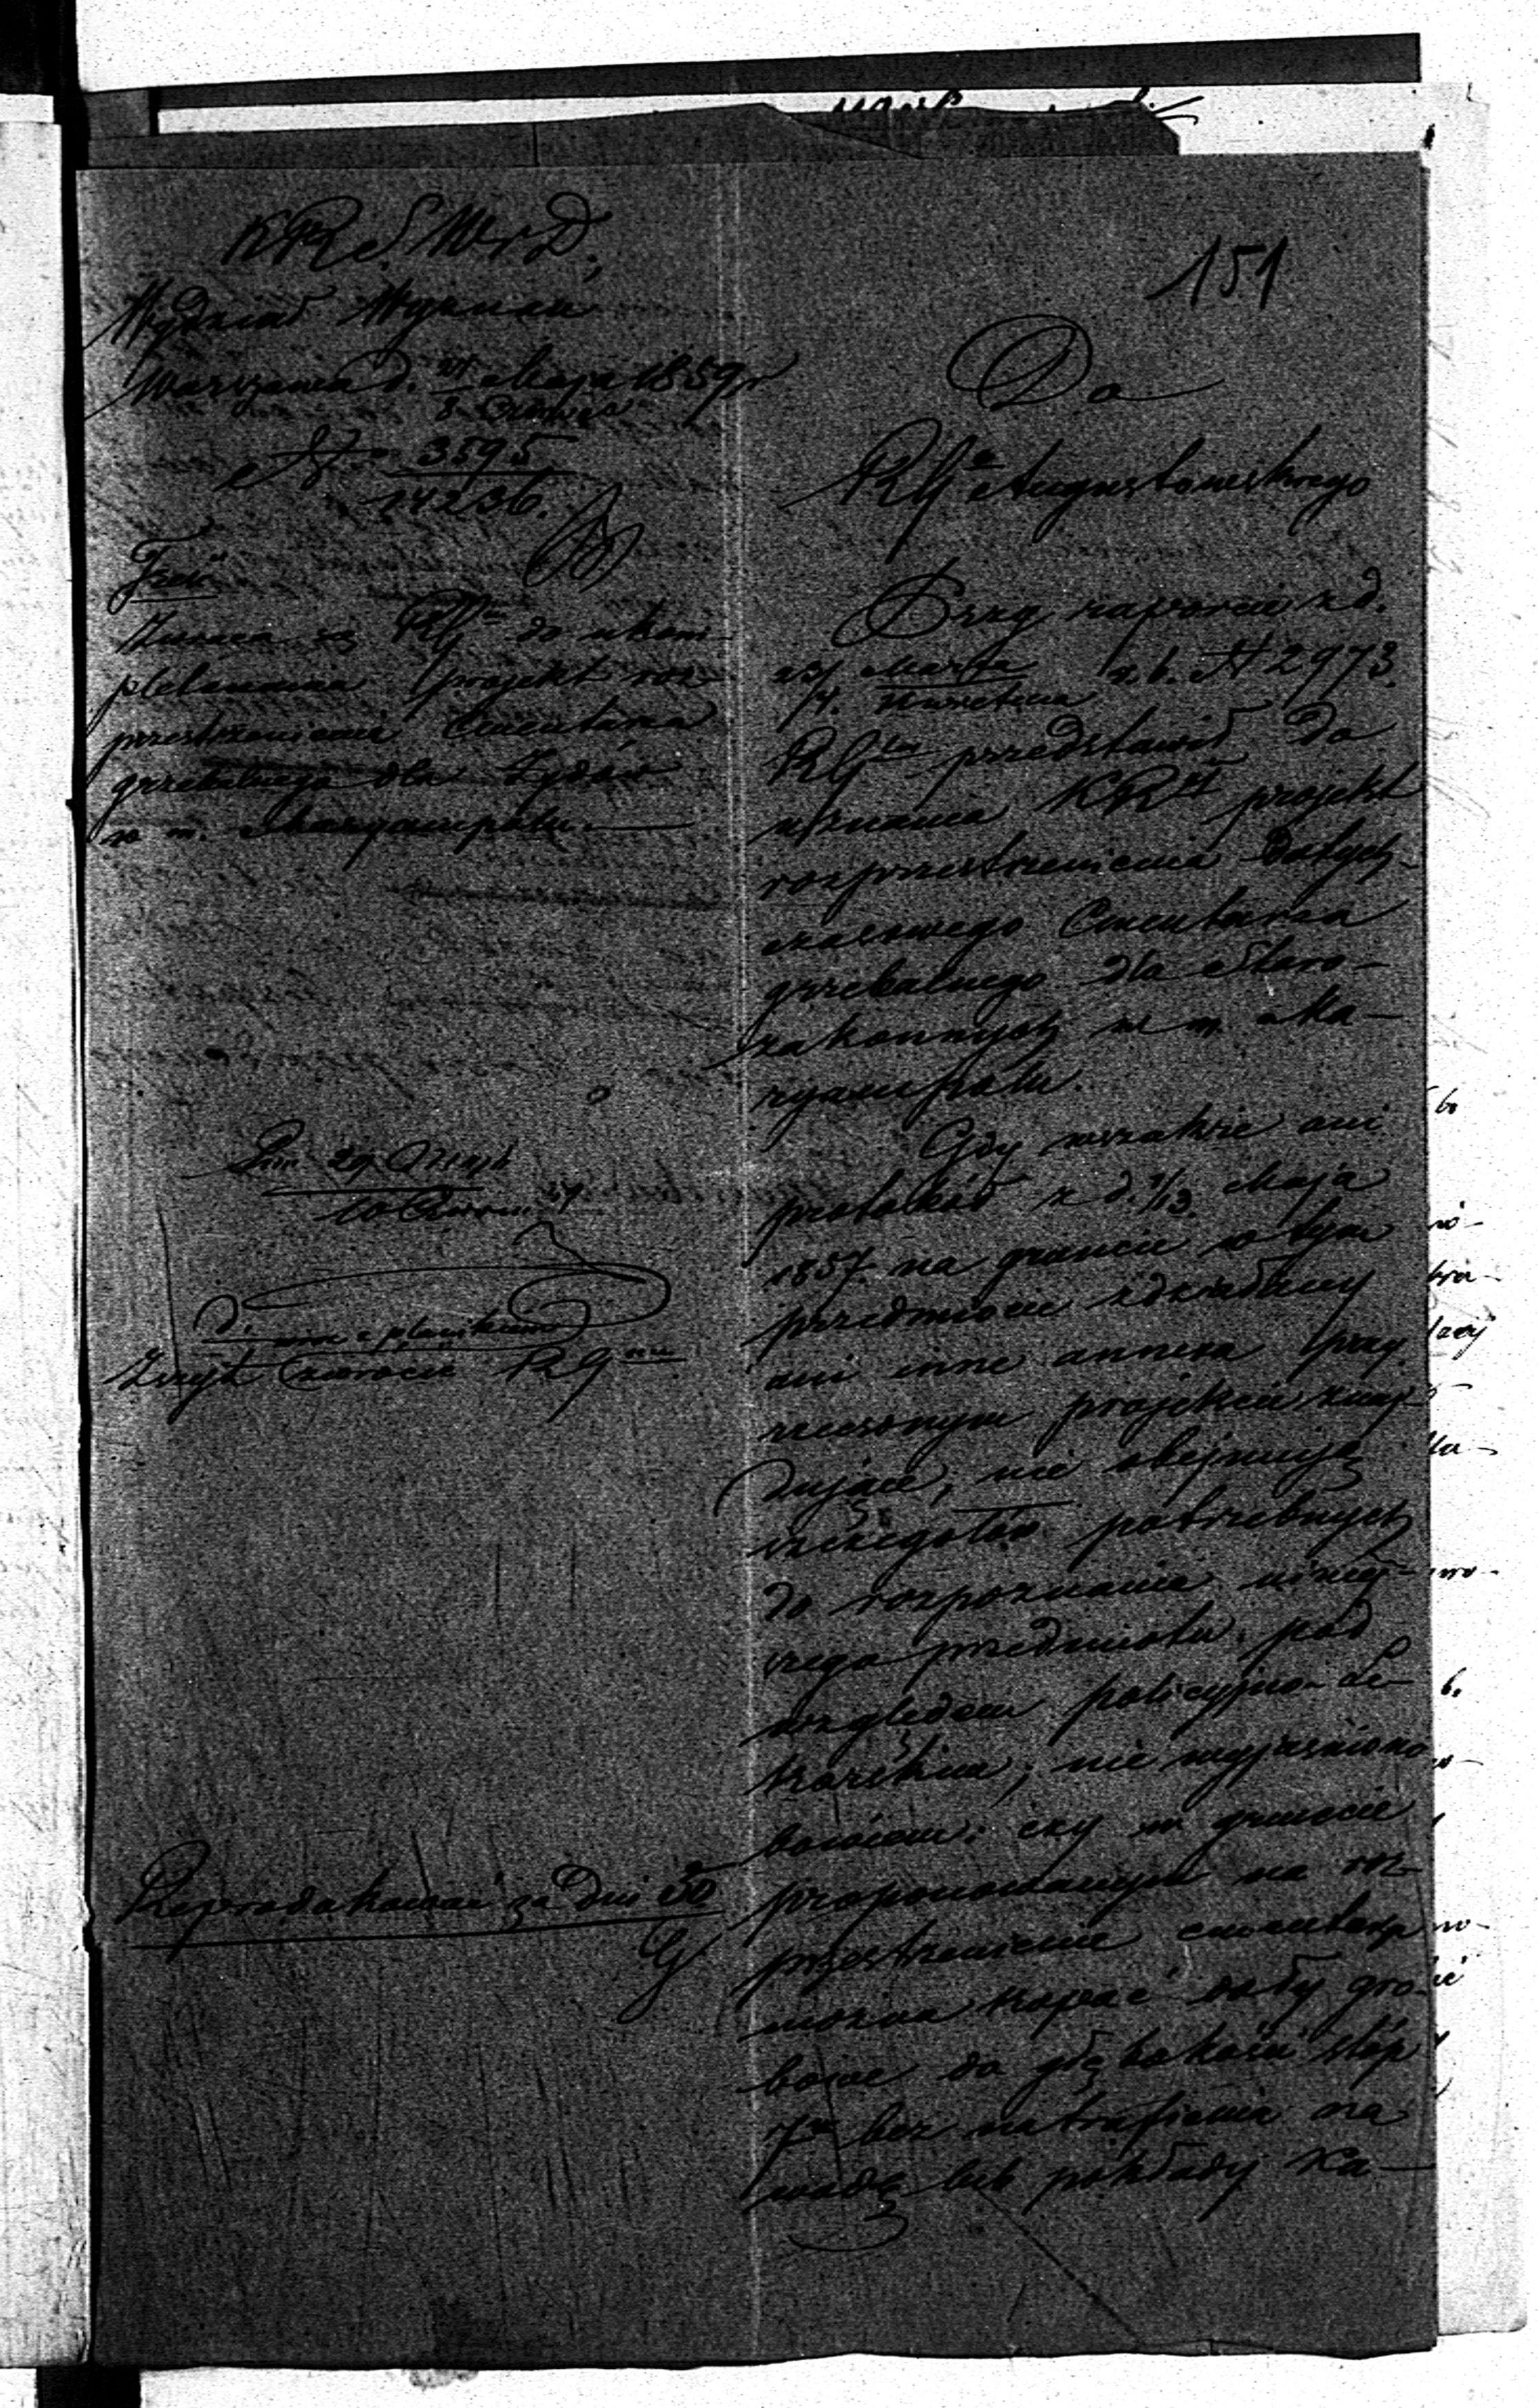 151
K R S W i D,
Wydział Wyznań
Warszawa d. Maja 1859 r
8 Czerwca
N 3595
14236.
Treść
Zwraca się RGu do ukom-
pletowania projekt roz-
przestrzenienia Cmentarza
grzebalnego dla Żydów
w m. Maryampolu.
29 Maja
10 Czerw.
z planikiem
Zszyt zwrócić RGowi
Reprodukować za dni 30
Do
RGu Augustowskiego
Przy raporcie z d.
Marca r. b. N 2973.
Kwietnia
RG przedstawił do
uznania KRz projekt
rozprzestrzenienia dotych-
czasowego Cmentarza
grzebalnego dla Staro-
zakonnych w m. Ma-
ryampolu.
Gdy wszakże ani
protokół z d. 1/13. Maja
1857 na gruncie w tym
przedmiocie zdziałany
ani inne annexa przy
rzeczonym projekcie znaj-
dujące, nie obejmują
szczegółów potrzebnych
do rozpoznania niniej-
szego przedmiotu pod
względem policyjno-le-
karskim; nie wyjaśniono
bowiem: czy w gruncie
proponowanym na roz-
przestrzenienie cmentarza
można kopać doły gro-
bowe do głębokości stóp
7u bez natrafienia na
wodę lub pokłady ka-